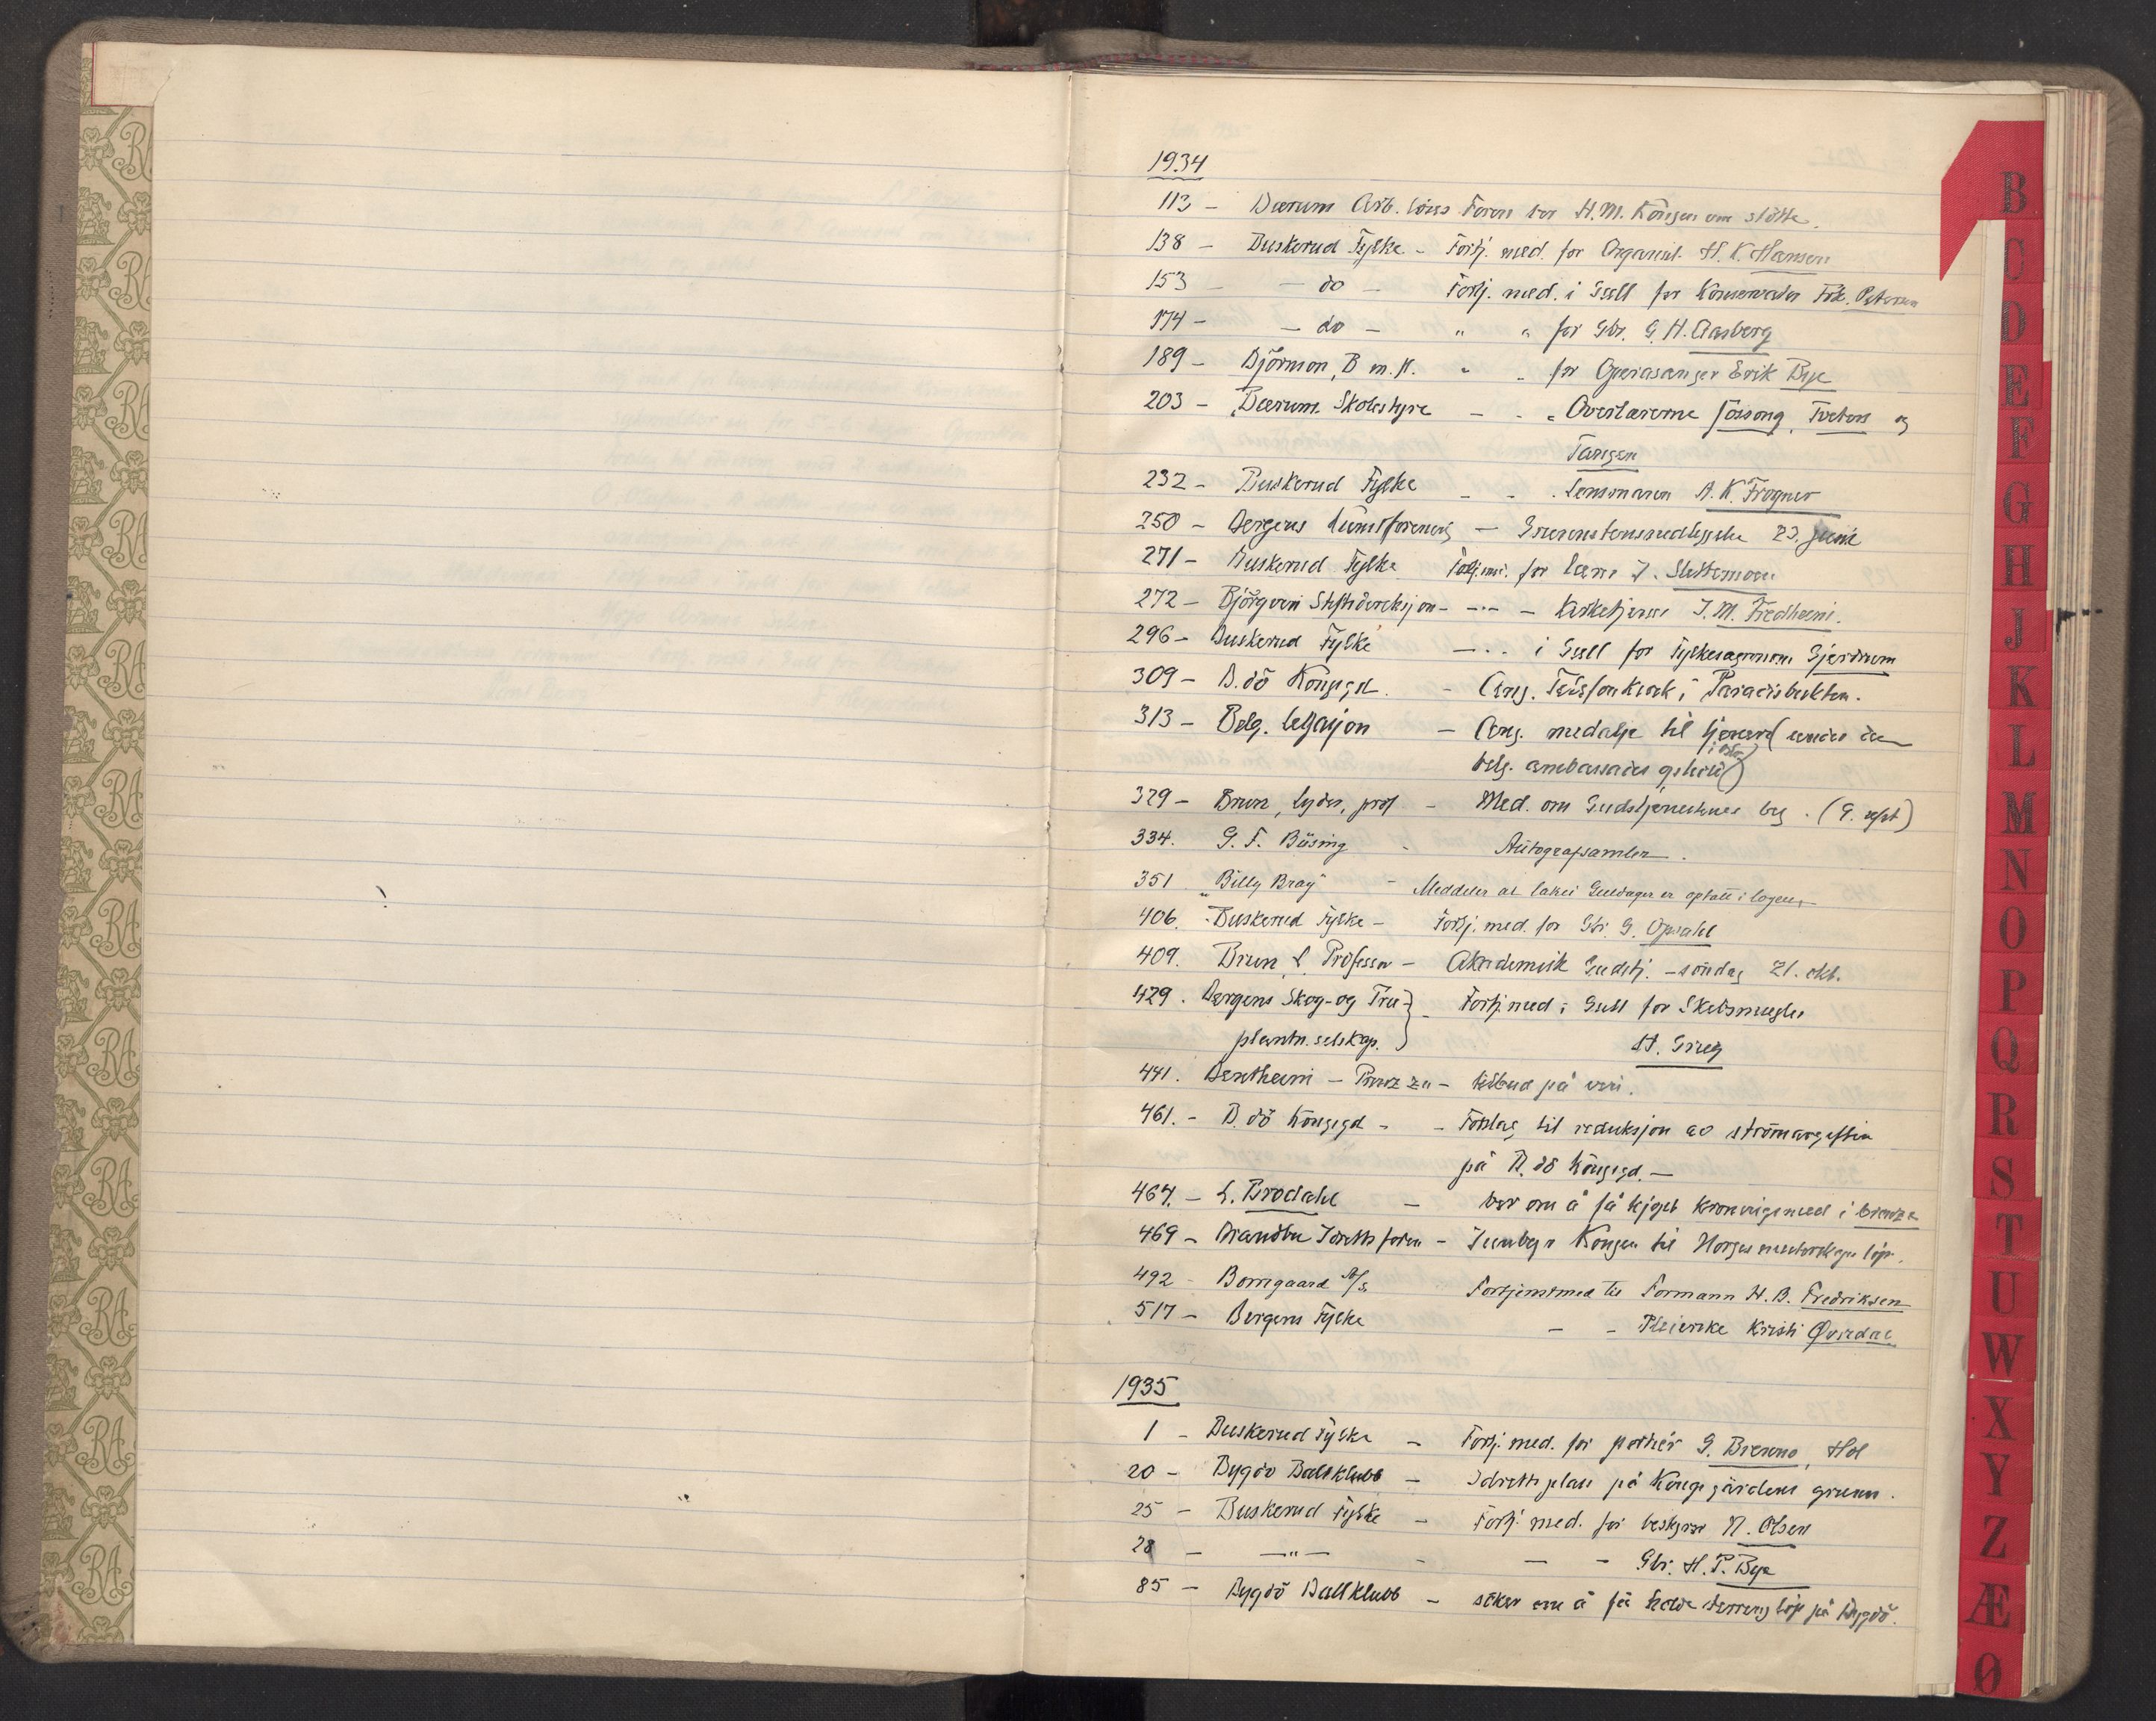 1934
113 - Bærum Arb. løses Foren ber H.M. Kongen om støtte.
138 - Buskerud Fylke - Fortj. med. for Organist H. K. Hansen
153 - do - Fortj. med. i Gull for Konservator Frk. Petersen
174 - do - " " for Gbr. G. H. Aasberg
189 - Björnson, B m. fl. " " for Operasanger Erik Bye
203 - Bærum Skolestyre - - " Overlærerne Fossong, Tveten og
Tangen
232 - Buskerud Fylke - - . Lensmann A. K. Frogner
250 - Bergens Kunstforening - Grunnstensnedleggelse 23. juni
271 - Buskerud Fylke Fortj.med. for Lærer J. Slettemoen
272 - Björgvin Stiftsdireksjon - -.- - Kirketjener J. M. Fredheim.
296 - Buskerud Fylke -.. i Gull for Fylkesagronom Gjerdrum
309 - B.dö Kongsgd. - Ang. Telefonkiosk i Paradisbukten.
313 - Belg. Legasjon - Ang. medalje til tjenere (under den
belg. ambassades ophold i Oslo)
329 - Brun, Lyder, prof. - Med. om Gudstjenestenes beg. (9. sept)
334. G. F. Büsing - Autografsamler.
351 "Billy Bray" - Meddeler at lakei Guldager er optatt i logen
406. Buskerud Fylke - Fortj. med. for Gbr. G. Opsahl
409. Brun, L. Professor - Akademisk Gudstj. - söndag 21. okt.
429. Bergens Skog- og Træ-} - Fortj.med i Gull for Skibsmegler
plantn. selskap. H. Grieg
441. Bentheim - Prinz zu - tilbud på vin.
461. - B. dö Kongsgd - - Forslag til reduksjon av strömavgiften
på B. dö Kongsgd. -
467. - L. Brodahl - ber om å få kjøpt kroningsmed i bronze
469 - Brandbu Idrettsforen - Innbyr Kongen til Norgesmesterskapsløp.
492 - Borregaard A/S. Fortjenstmed til Formann H. B. Fredriksen
517 - Bergens Fylke - - Pleierske Kristi Qvirdal
1935
1 - Buskerud Fylke - Fortj. med. for portier G. Brenno, Hol
20 - Bygdö Ballklubb - Idrettsplass på Kongsgårdens grunn.
25 - Buskerud Fylke - Fortj. med. for bestyrer N. Olsen
28 - -"- - - - Gbr. H. P. Bye
85 - Bygdö Ballklubb - söker om å få holde terrengløp på Bygdö.
B
C
D
E
F
G
H
J
K
L
M
N
O
P
Q
R
S
T
U
W
X
Y
Z
Æ
Ø